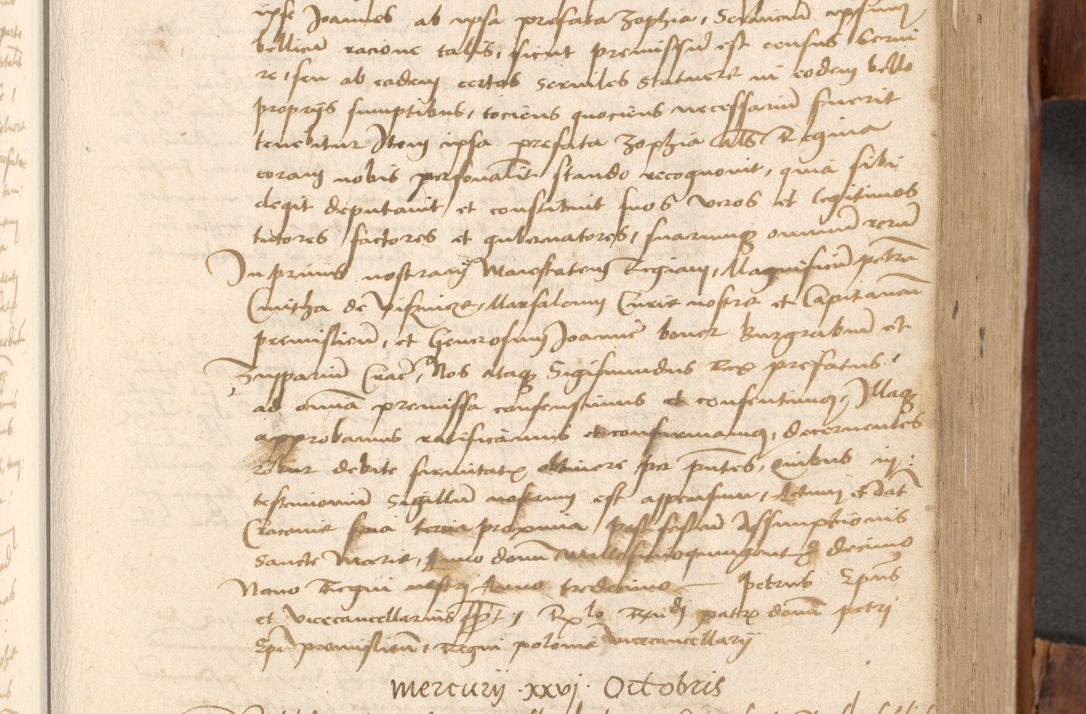 ipse Joannes ab ipsa prefata Zophia, Servicium ipsum
bellicum racione talis, sicut premissum est census Servi
re, seu ab eadem certos Serviles Statuere in eodem bello
proprijs sumptibus, tociens quociens necessarium fuerit
tenebitur Item ipsa prefata Zophia als Regina
coram nobis personalit stando recognovit, quia sibi
elegit deputavit et constituit suos veros et legitimos
tutores factores et gubernatores, suarumq omnium rerum
In primis nostram Maiestatem Regiam, Magnificum petrum
Cmitha de Visnicze, Marsalcum Curie nostre et Capitaneum
premislien, et Generosum Joannem boner Burgrabium et
Zupparium Crac, Nos itaq Sigismundus Rex prefatus
ad omnia premissa consensimus et consentimus, Illaq
approbamus ratificamus et confirmamus, decernentes
robur debite firmitatis obtinere per pntes, Quibus in
testimonium Sigillum nostrum est appensum, Actum et Dat
Cracovie feria tercia proxima post festum Assumptionis
Sancte Marie, Anno domini Millesimoquingentmo decimo
Nono Regni nostri Anno tredecimo Petrus Epus
et vicecancellarius sspt Rx lo Rndi patris domini petri
Epi premislien Regni polonie vicecancellarij
Mercurij . xxvj . Octobris